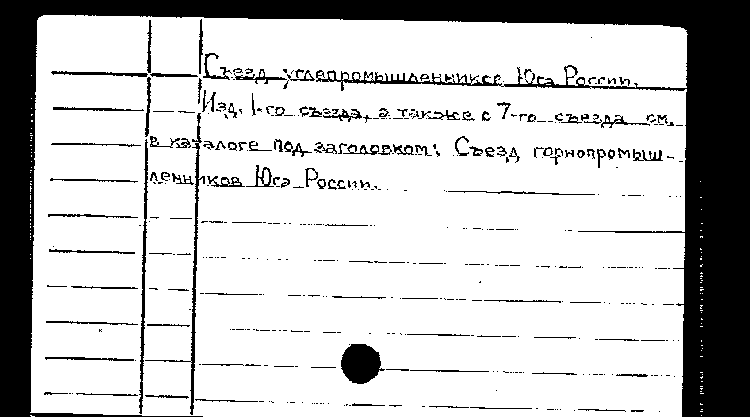 Съезд углепромышленников Юга России.
Изд. 1-го съезда, а также с 7-го съезда см.
в каталоге под заголовком: Съезд горнопромыш-
ленников Юга России.